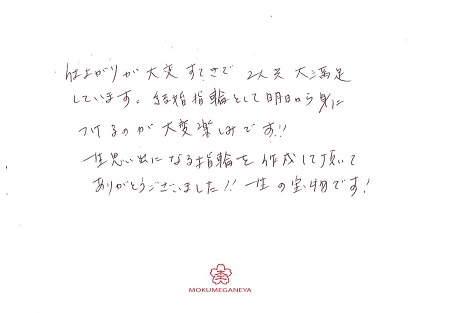 仕上がりが大変すてきで 2人共 大満足
しています。結婚指輪として明日から身に
つけるのが大変楽しみです!!
一生思い出になる指輪を作成して頂いて
ありがとうございました!! 一生の宝物です!
MOKUMEGANEYA